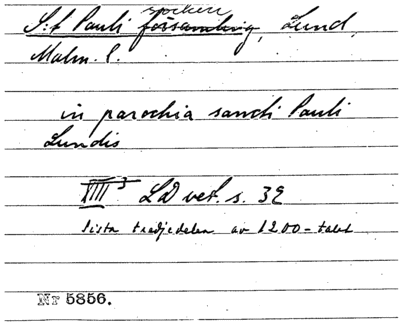 S:t Pauli socken församling, Lund,
Malm. l.
in parochia sancti Pauli
Lundis
XIII 3 LD vet. s. 32
sista tredjedelen av 1200-talet
Nr 5856.